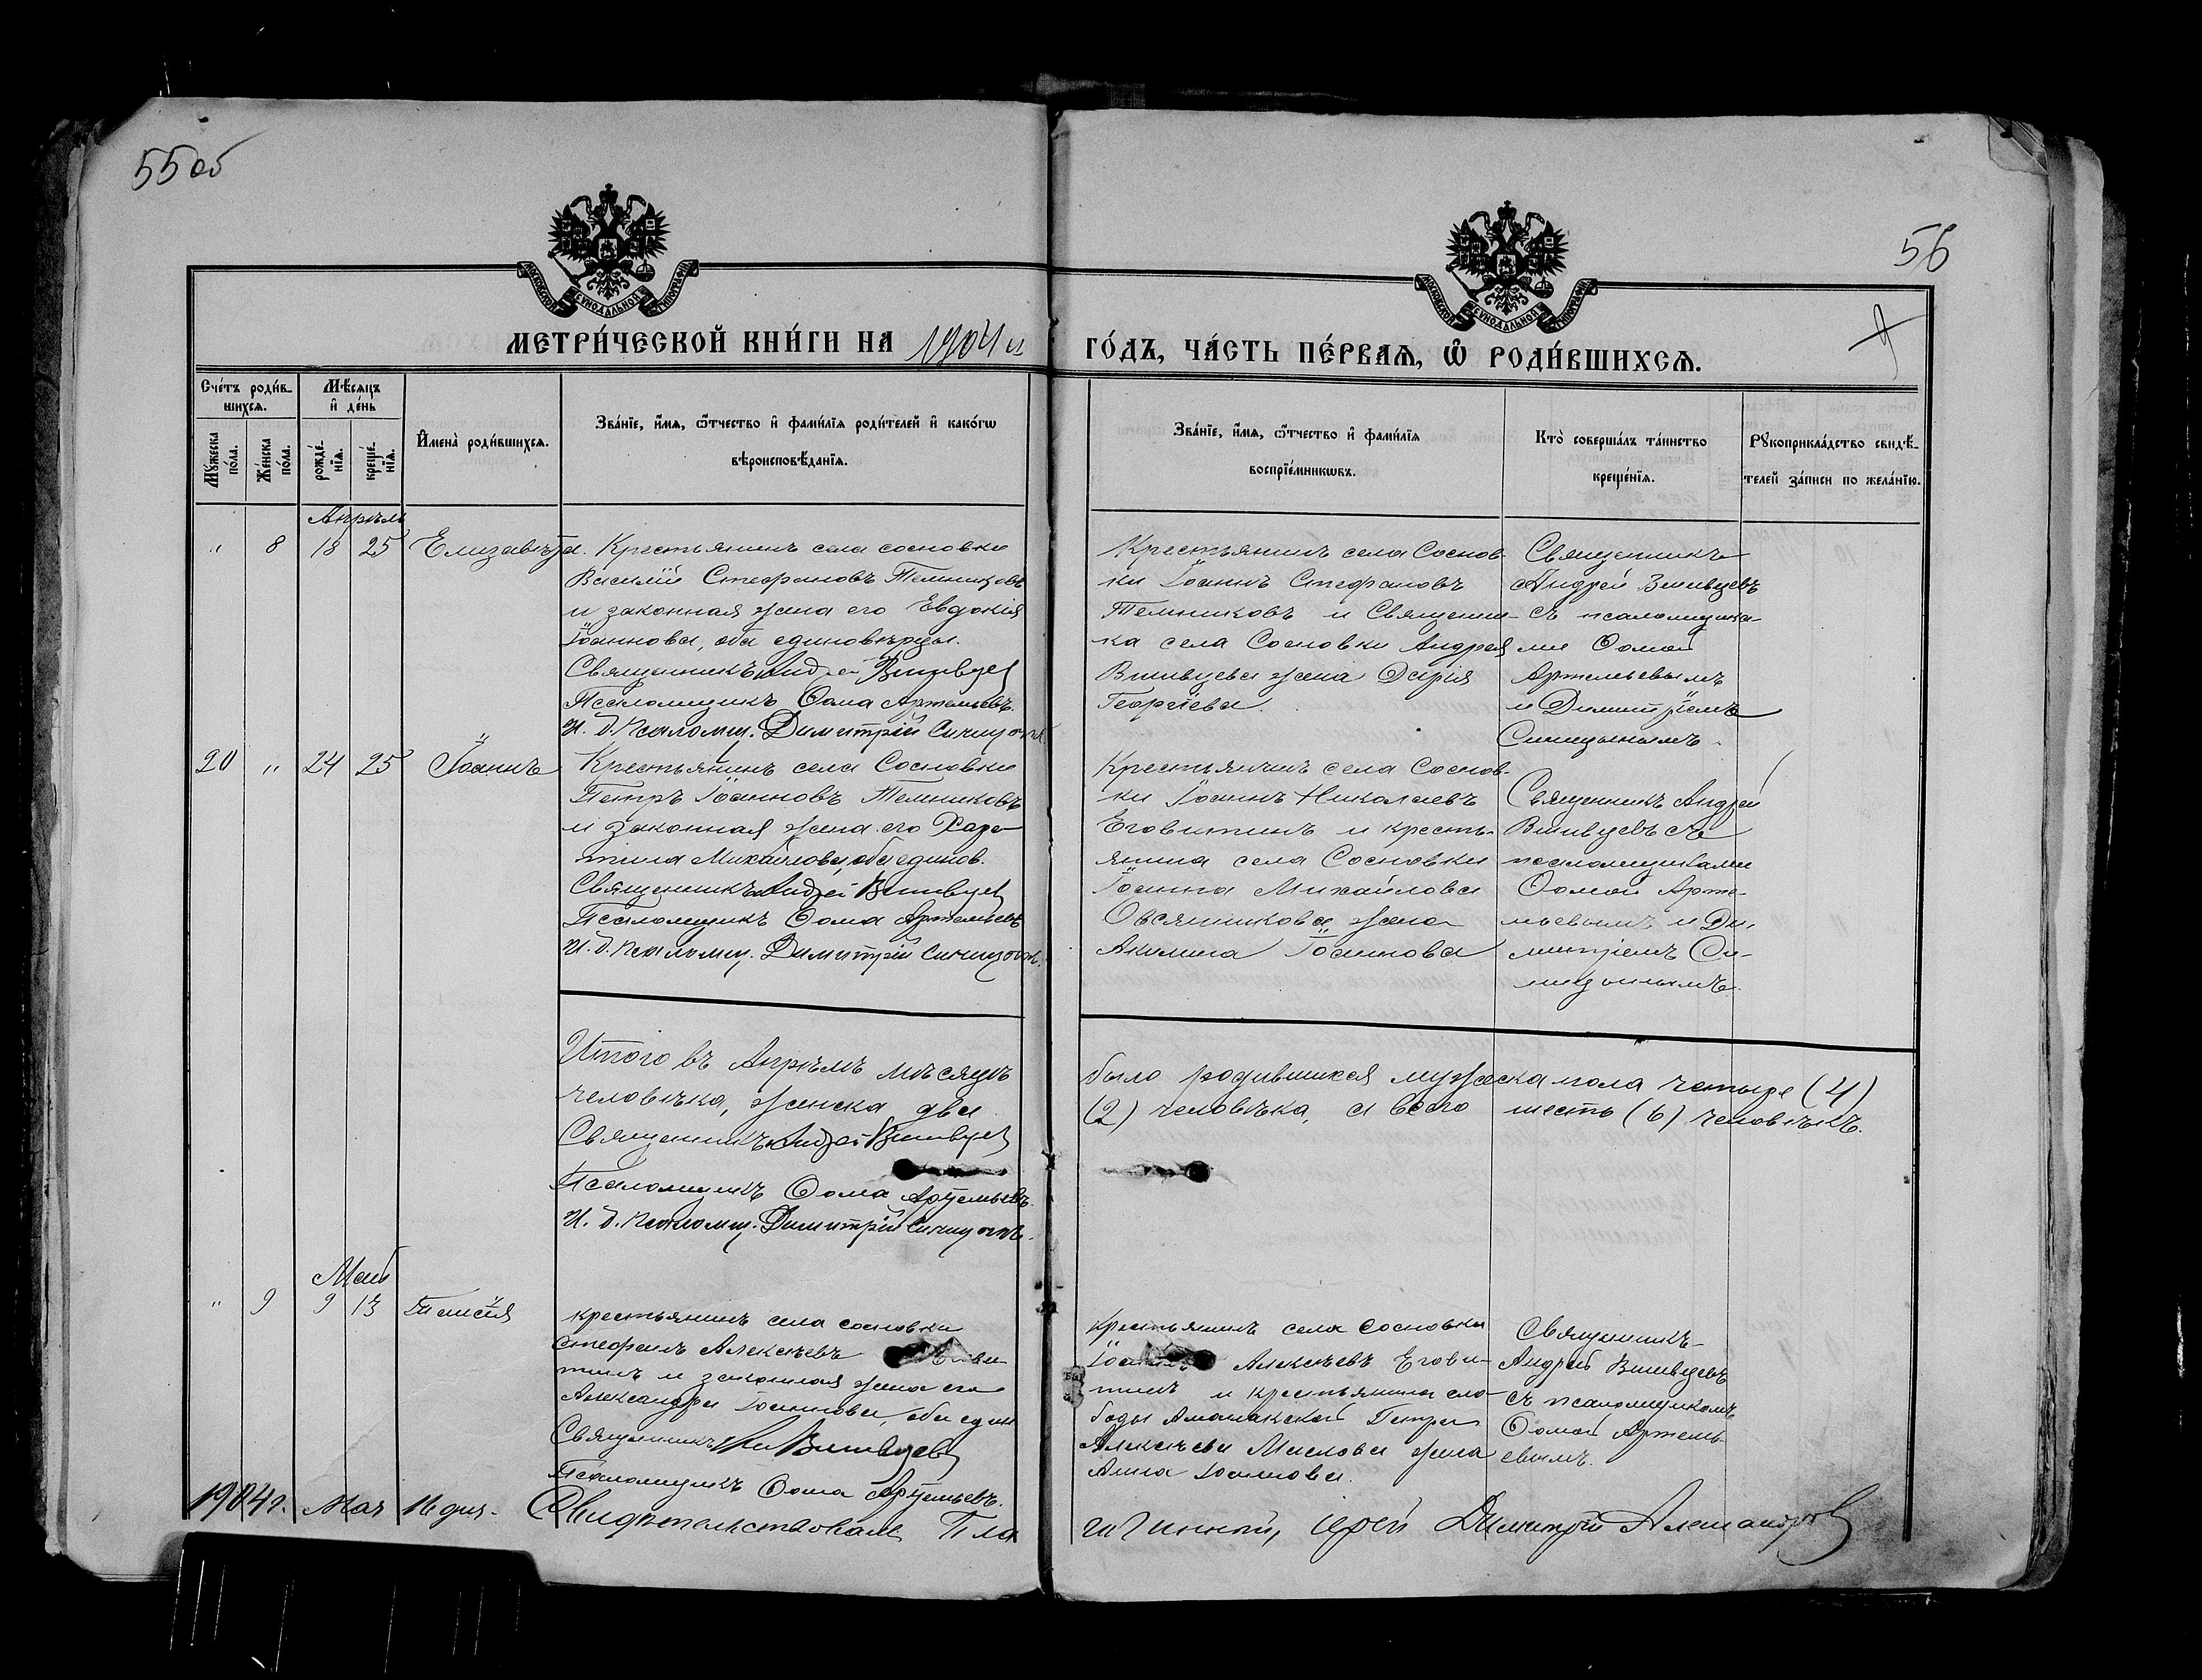 55об
56
МОСКОВСКОЙ СѴНОДАЛЬНОЙ ТИПОГРАФІИ
МОСКОВСКОЙ СѴНОДАЛЬНОЙ ТИПОГРАФІИ
МЕТРИ́ЧЕСКОЙ КНИ́ГИ НА 1904й
ГО́ДЪ, ЧА́СТЬ ПЕ́РВАЯ, Ѡ РОДИ́ВШИХСЯ.
Сче́тъ роди́в-
шихся.
Мꙋжеска по́ла.
Же́нска по́ла.
Мѣ́сяцъ
и де́нь
рожде́-нїя.
креще́-нїя.
Имена̀ роди́вшихся.
Зва́нїе, и́мя, ѻ́тчество и фами́лїя роди́телей и како́гѡ
вѣроисповѣ́данїя.
Зва́нїе, и́мя, ѻ́тчество и фами́лїя
воспрїе́мникѡвъ.
Кто̀ соверша́лъ та́инство
креще́нїя.
Рꙋкоприкла́дство свидѣ́-
телей за́писи по жела́нїю.
Апрѣль
" 8 18 25 Елизавѣта.
Крестьянинъ села сосновки
Василій Стефановъ Темниковъ
и законная жена его Евдокія
Іоаннова, оба единовѣрцы.
Священникъ Андрей Вшивцев
Псаломщикъ Ѳома Артемьевъ.
И. д. псаломщ. Димитрій Синицынъ.
Крестьянинъ села Соснов-
ки Іоаннъ Стефановъ
Темниковъ и Священни-
ка села Сосновки Андрея
Вшивцева жена Дарія
Георгіева.
Священникъ
Андрей Вшивцевъ
съ псаломщика-
ми Ѳомой
Артемьевымъ
и Димитріемъ
Синицынымъ.
20 " 24 25 Іоаннъ
Крестьянинъ села Сосновки
Петръ Іоанновъ Темниковъ
и законная жена его Харе-
тина Михайлова, оба единов.
Священникъ Андрей Вшивцев
Псаломщикъ Ѳома Артемьевъ
И. д. псаломщ. Димитрій Синицынъ.
Крестьянинъ села Соснов-
ки Іоаннъ Николаевъ
Еговитинъ и кресть-
янина села Сосновки
Іоанна Михайлова
Овсянникова жена
Акилина Іоаннова
Священникъ Андрей
Вшивцевъ съ
псаломщиками
Ѳомой Арте-
мьевымъ и Ди-
митріемъ Си-
ницынымъ.
Итого въ Апрѣлѣ мѣсяцѣ
было родившихся мужеска пола четыре (4)
человѣка, женска два
(2) человѣка, а всего шесть (6) человѣкъ.
Священникъ Андрей Вшивцев
Псаломщикъ Ѳома Артемьевъ.
И. д. псаломщ. Димитрій Синицынъ.
Май
" 9 9 13 Таисія
крестьянинъ села сосновки
Стефанъ Алексѣевъ Егови-
тинъ и законная жена его
Александра Іоаннова, оба един
Священникъ Вшивцевъ
Псаломщикъ Ѳома Артемьевъ.
Крестьянинъ села Сосновки
Іоаннъ Алексѣевъ Егови-
тинъ и крестьянина сло-
боды Петра
Алексѣева Маслова жена
Анна Іоаннова.
Священникъ
Андрей Вшивцевъ
съ псаломщикомъ
Ѳомой Артемь-
евымъ.
1904 г. Мая 16 дня. Свидѣтельствовалъ Бла
гочинный, іерей Димитрій Александров